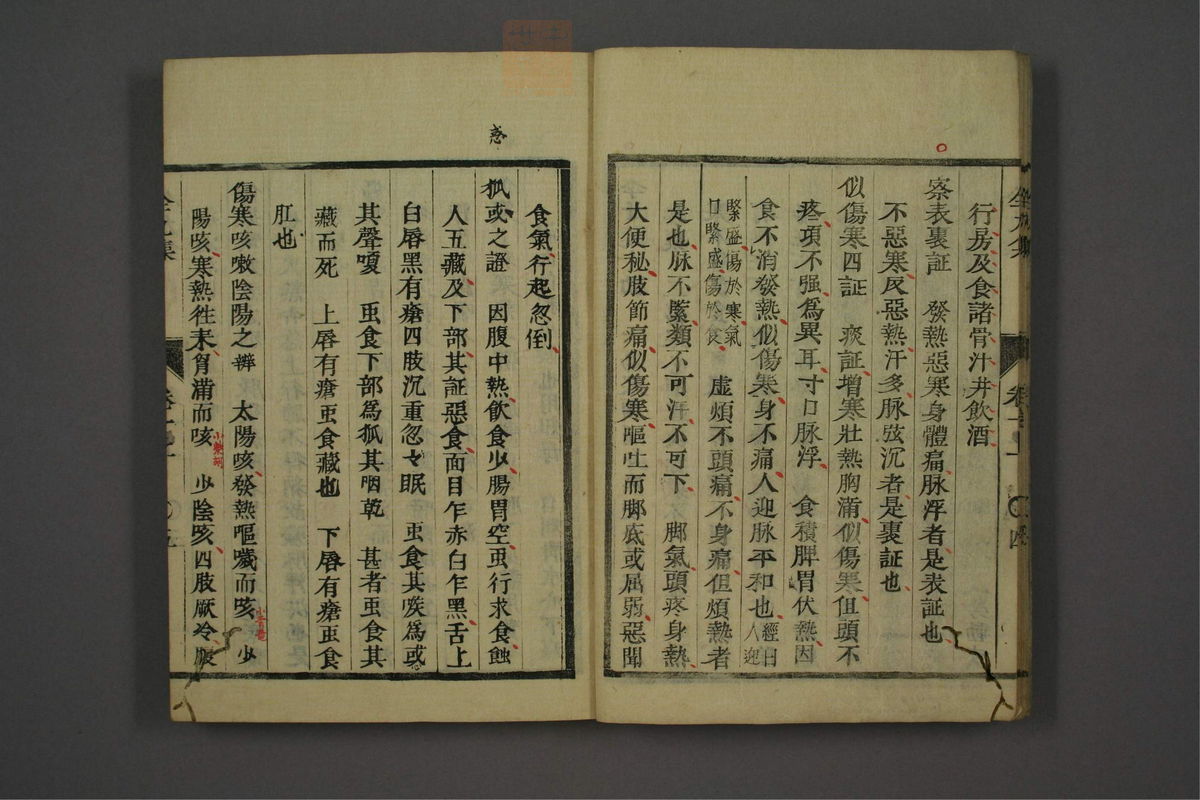 行房及食諸骨汁井飲酒
察表裏証　發熱惡寒身體痛脉浮者是表証也
不惡寒反惡熱汗多脉弦沉者是裏証也
似傷寒四証　痰証增寒壯熱胸滿似傷寒但頭不
疼項不强爲異耳寸口脉浮　食積脾胃伏熱因
食不消發熱似傷寒身不痛人迎脉平和也經曰人迎
緊盛傷於寒氣口緊盛傷於食　虛煩不頭痛不身痛但煩熱者
是也脉不緊類不可汗不可下　脚氣頭疼身熱
大便秘肢節痛似傷寒嘔吐而脚底或屈弱惡聞
食氣行起忽倒
惑
狐或之證　因腹中熱飲食少腸胃空䖝行求食蝕
人五藏及下部其証惡食面目乍赤白乍黑舌上
白唇黑有瘡四肢沉重忽々眠　䖝食其喉爲或
其聲嗄　䖝食下部爲狐其咽乾　甚者䖝食其
藏而死　上唇有瘡䖝食藏也　下唇有瘡䖝食
肛也
傷寒咳嗽陰陽之辨　太陽咳發熱嘔噦而咳　少
陽咳寒熱徃来胷滿而咳　少陰咳四肢厥冷腹